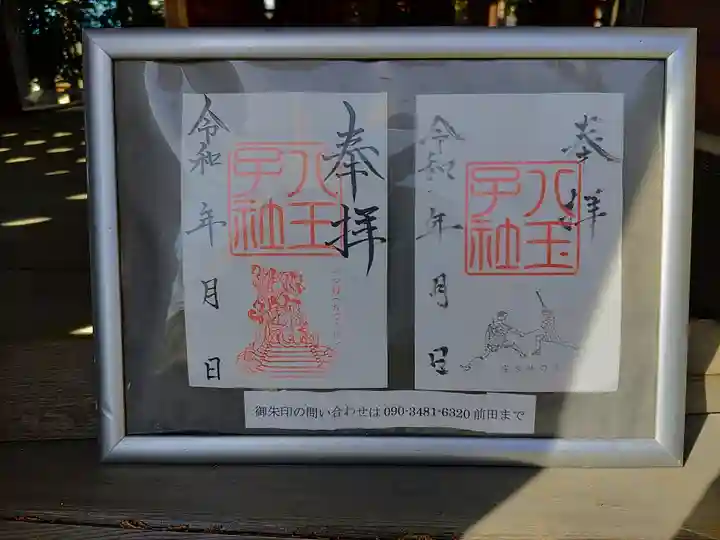 奉拝
八王子社
令和 年 月 日
奉拝
八王子社
令和 年 月 日
御朱印の問い合わせは 090-3481-6320 前田まで